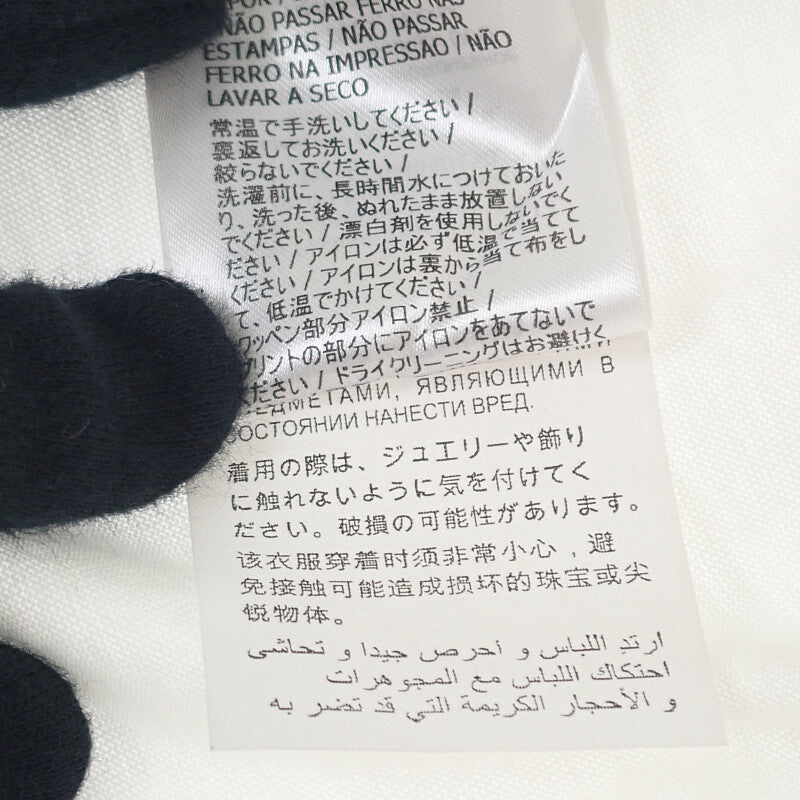 NÃO PASSAR FERRO NAS
ESTAMPAS / NÃO PASSAR
FERRO NA IMPRESSAO / NÃO
LAVAR A SECO
常温で手洗いしてください /
裏返してお洗いください /
絞らないでください /
洗濯前に、長時間水につけておいた
り、洗った後、ぬれたまま放置しない
でください / 漂白剤を使用しないでく
ださい / アイロンは必ず低温で当てて
ください / アイロンは裏から当て布をし
て、低温でかけてください /
ワッペン部分アイロン禁止 /
プリントの部分にアイロンをあてないで
ください / ドライクリーニングはお避けく
ЯВЛЯЮЩИМИ В
СОСТОЯНИИ НАНЕСТИ ВРЕД.
着用の際は、ジュエリーや飾り
に触れないように気を付けてく
ださい。破損の可能性があります。
该衣服穿着时须非常小心，避
免接触可能造成损坏的珠宝或尖
锐物体。
ارتد اللباس و أحرص جيدا و تحاشى
احتكاك اللباس مع المجوهرات
و الأحجار الكريمة التي قد تضر به